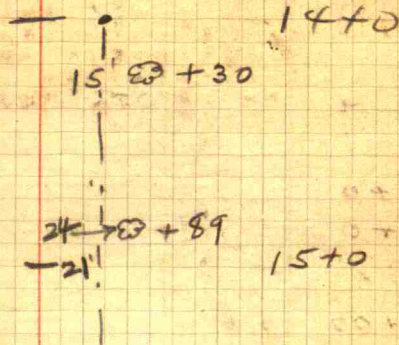 14+0
15' + 30
24 → + 89
21' 15+0